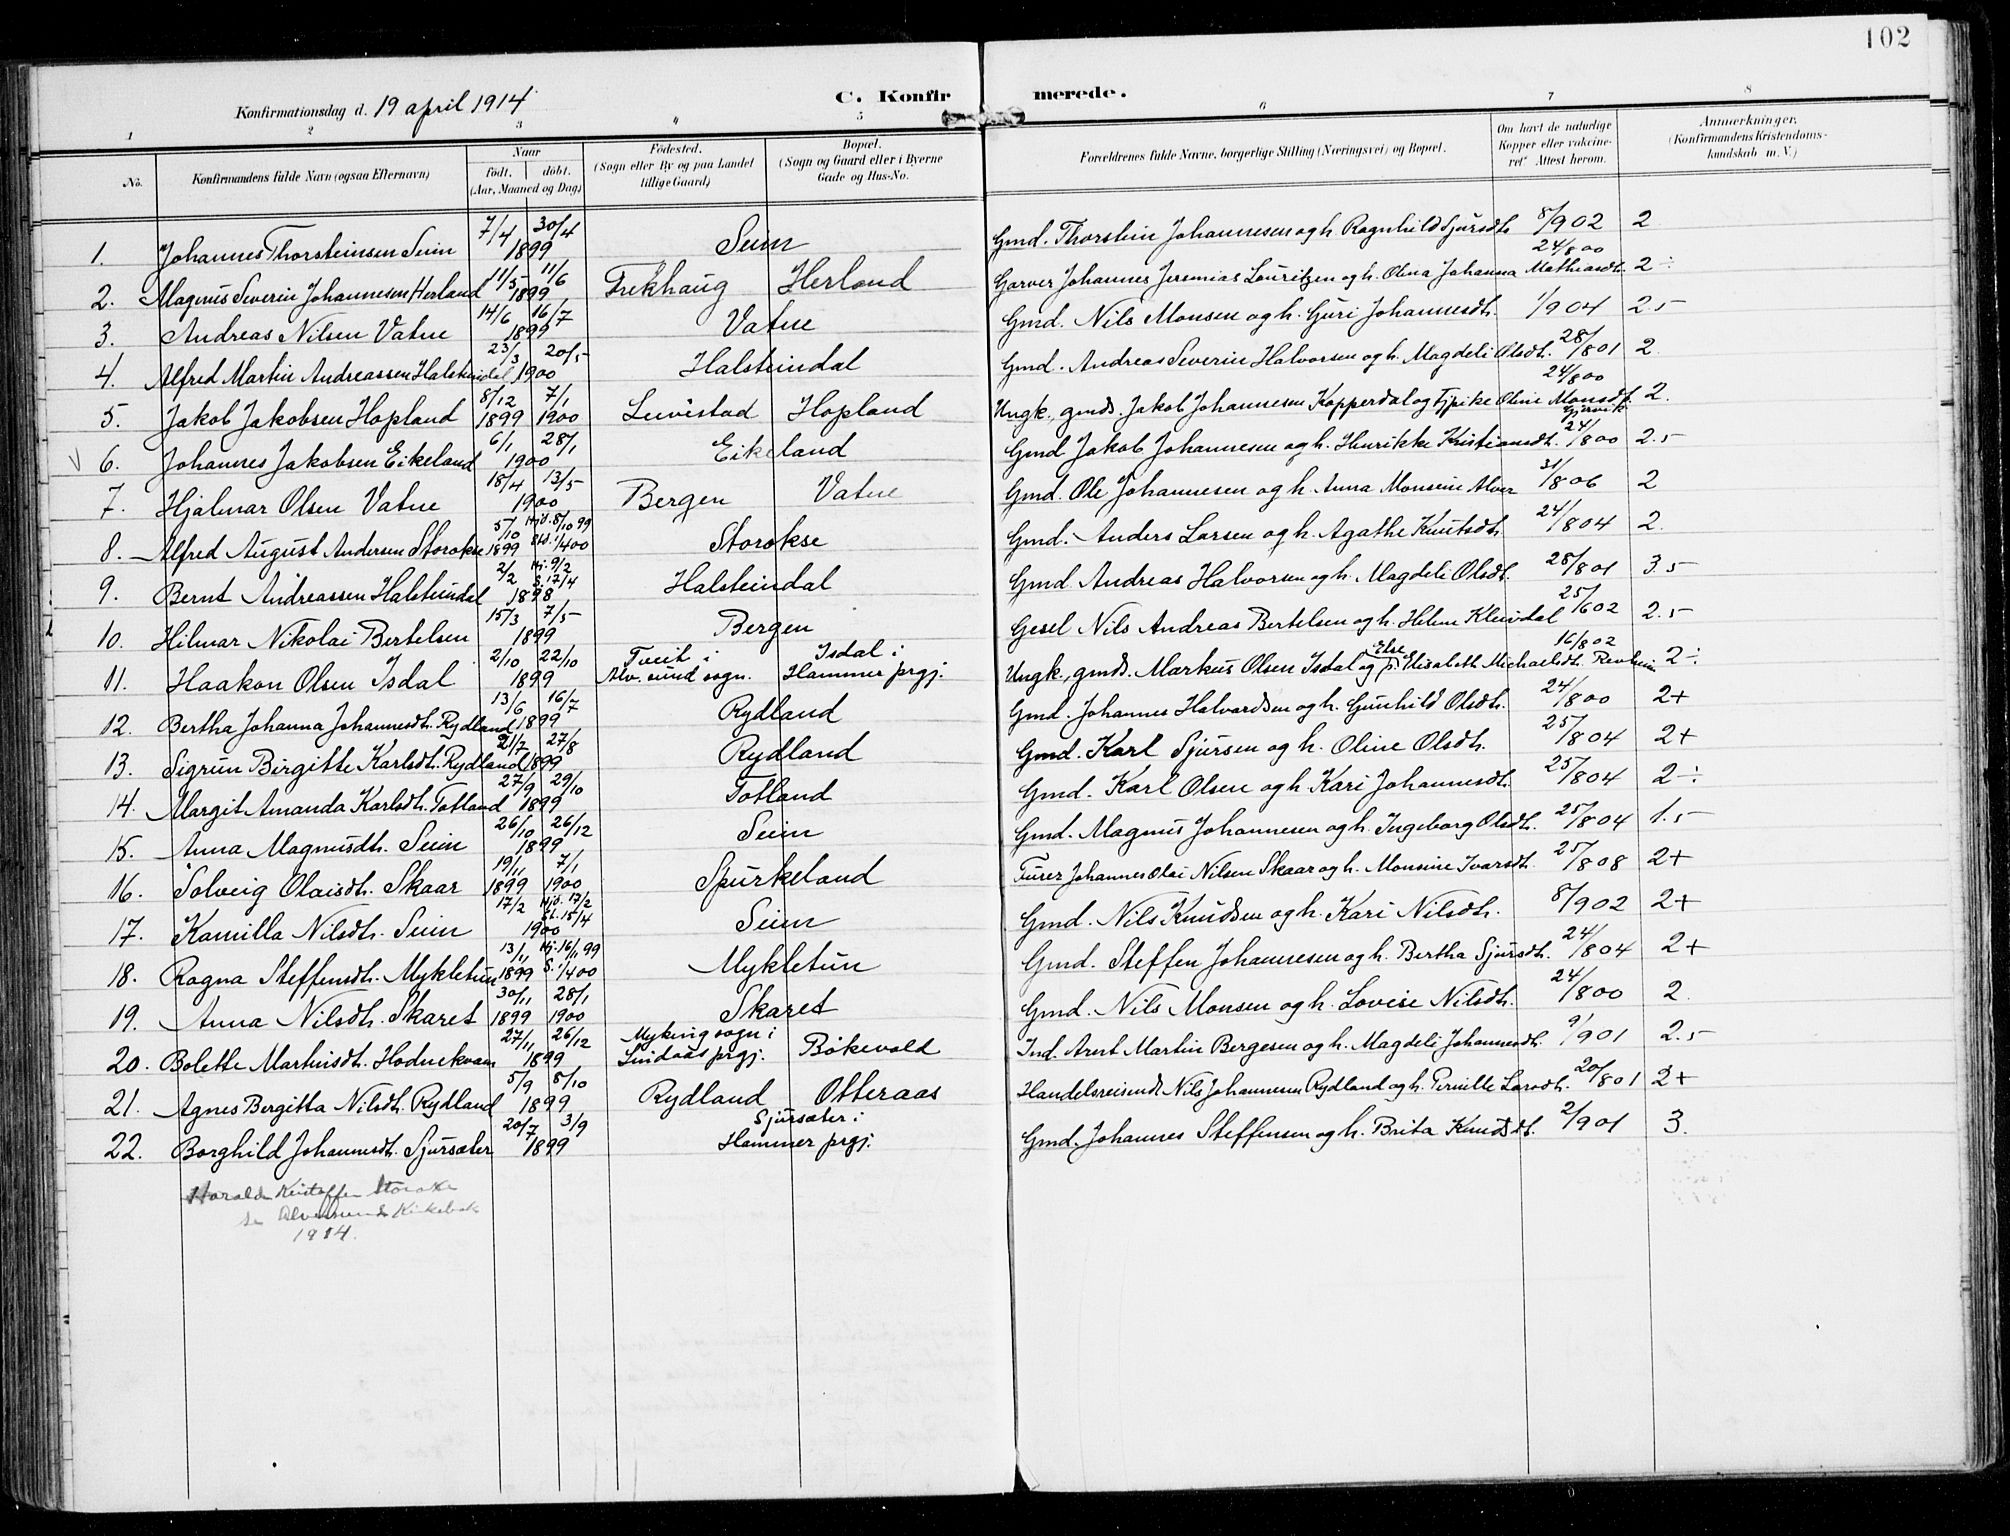 102
Konfirmationsdag d. 19 april 1914
C. Konfirmerede.
1 2 3 4 5 6 7 8
No. Konfirmandens fulde Navn (ogsaa Efternavn) Naar født. døbt. (Aar, Maaned og Dag) Fødested. (Sogn eller By og paa Landet tillige Gaard) Bopæl. (Sogn og Gaard eller i Byerne Gade og Hus-No.) Forældrenes fulde Navne, borgerlige Stilling (Næringsvei) og Bopæl. Om havt de naturlige Kopper eller vaccineret? Attest herom. Anmærkninger. (Konfirmandens Kristendomskundskab m. V.)
1. Johannes Thorsteinsen Seim 7/4 30/4 1899 Seim Gmd. Thorstein Johannesen og h. Ragnhild Sjursdt. 8/9 02 2
2. Magnus Severin Johannesen Herland 11/5 11/6 1899 Frekhaug Herland Garver Johannes Jeremias Lauritzen og h. Olina Johanna Mathiasdt. 24/8 00 2 ÷
3. Andreas Nilsen Vatne 14/6 16/7 1899 Vatne Gmd. Nils Monsen og h. Guri Johannesdt. 1/9 04 2.5
4. Alfred Martin Andreassen Halsteindal 23/3 20/5 1900 Halsteindal Gmd. Andreas Severin Halvorsen og h. Magdeli Olsdt. 28/8 01 2.
5. Jakob Jakobsen Hopland 8/12 1899 7/1 1900 Leivestad Hopland Ungk., gmds. Jakob Johannesen Kopperdal og Pike Oline Monsdt. Gjervik 24/8 00 2.
6. Johannes Jakobsen Eikeland 6/1 28/1 1900 Eikeland Gmd Jakob Johannesen og h. Henrikke Kristiansdt. 24/8 00 2.5
7. Hjalmar Olsen Vatne 18/4 13/5 1900 Bergen Vatne Gmd. Ole Johannesen og h. Anna Monsine Alver 31/8 06 2
8. Alfred August Andersen Storokse 5/10 1899 Hjd. 8/10 99 Std. 1/4 00 Storokse Gmd. Anders Larsen og h. Agathe Knutsdt. 24/8 04 2.
9. Bernt Andreassen Halsteindal 2/2 Hj. 9/2 S. 17/4 1898 Halsteindal Gmd Andreas Halvorsen og h. Magdeli Olsdt. 28/8 01 3.5
10. Hilmar Nikolai Bertelsen 15/3 7/5 1899 Bergen Gesel Nils Andreas Bertelsen og h. Helene Kleivdal 25/6 02 2.5
11. Haakon Olsen Isdal 2/10 22/10 1899 Tveit i Alv. sund sogn. Isdal i Hammer prgj. Ungk., gmds. Markus Olsen Isdal og p. Else Elisabeth Michaelsdt. 16/8 02 2 ÷
12. Bertha Johanna Johannesdt. Rydland 13/6 16/7 1899 Rydland Gmd. Johannes Halvardsen og h. Gunhild Olsdt. 24/8 00 2+
13. Sigrun Birgitte Karlsdt. Rydland 21/7 27/8 1899 Rydland Gmd. Karl Sjursen og h. Oline Olsdt. 25/8 04 2+
14. Margit Amanda Karlsdt. Totland 27/9 29/10 1899 Totland Gmd. Karl Olsen og h. Kari Johannesdt. 25/8 04 2 ÷
15. Anna Magnusdt. Seim 26/10 26/12 1899 Seim Gmd. Magnus Johannesen og h. Ingeborg Olsdt. 25/8 04 1.5
16. Solveig Olaisdt. Skaar 19/11 1899 7/1 1900 Spurkeland Furer Johannes Olai Nilsen Skaar og h. Monsine Ivarsdt. 25/8 08 2+
17. Kamilla Nilsdt. Seim 17/2 Hjd. 17/2 St. 15/4 1900 Seim Gmd. Nils Knudsen og h. Kari Nilsdt. 8/9 02 2+
18. Ragna Steffensdt. Mykletun 13/11 1899 Hj. 16/11 99 S. 1/4 00 Mykletun Gmd. Steffen Johannesen og h. Bertha Sjursdt. 24/8 04 2+
19. Anna Nilsdt. Skaret 30/11 1899 28/1 1900 Skaret Gmd. Nils Monsen og h. Lovise Nilsdt. 24/8 00 2
20. Bolette Martinsdt. Hodnekvam 27/11 26/12 1899 Myking sogn i Lindaas prgj. Bøkevold Ind. Arent Martin Bergesen og h. Magdeli Johannesdt. 9/9 01 2.5
21. Agnes Bergitta Nilsdt. Rydland 5/9 8/10 1899 Rydland Otteraas Handelsreisende Nils Johannesen Rydland og h. Pernille Larsdt. 20/8 01 2+
22. Borghild Johannesdt. Sjursæter 20/7 3/9 1899 Sjursæter i Hammer prgj. Gmd. Johannes Steffensen og h. Brita Knudsdt. 2/9 01 3.
Harald Kristoffer Storokse
se Alversund Kirkebok
1914.